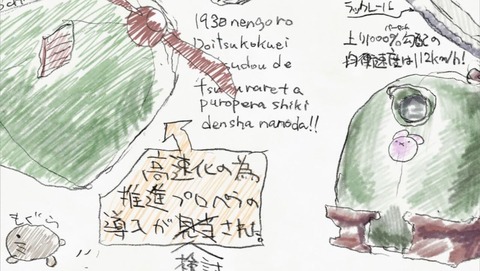 1930nengoro
Doitsukokuei
tsudou de
tsukurareta
puropera shiki
densha nanoda!!
ラックレール
上り1000%勾配の
パーセント
均衡速度は112km/h!
高速化の為
推進プロペラの
導入が見当された。
検討
もぐら